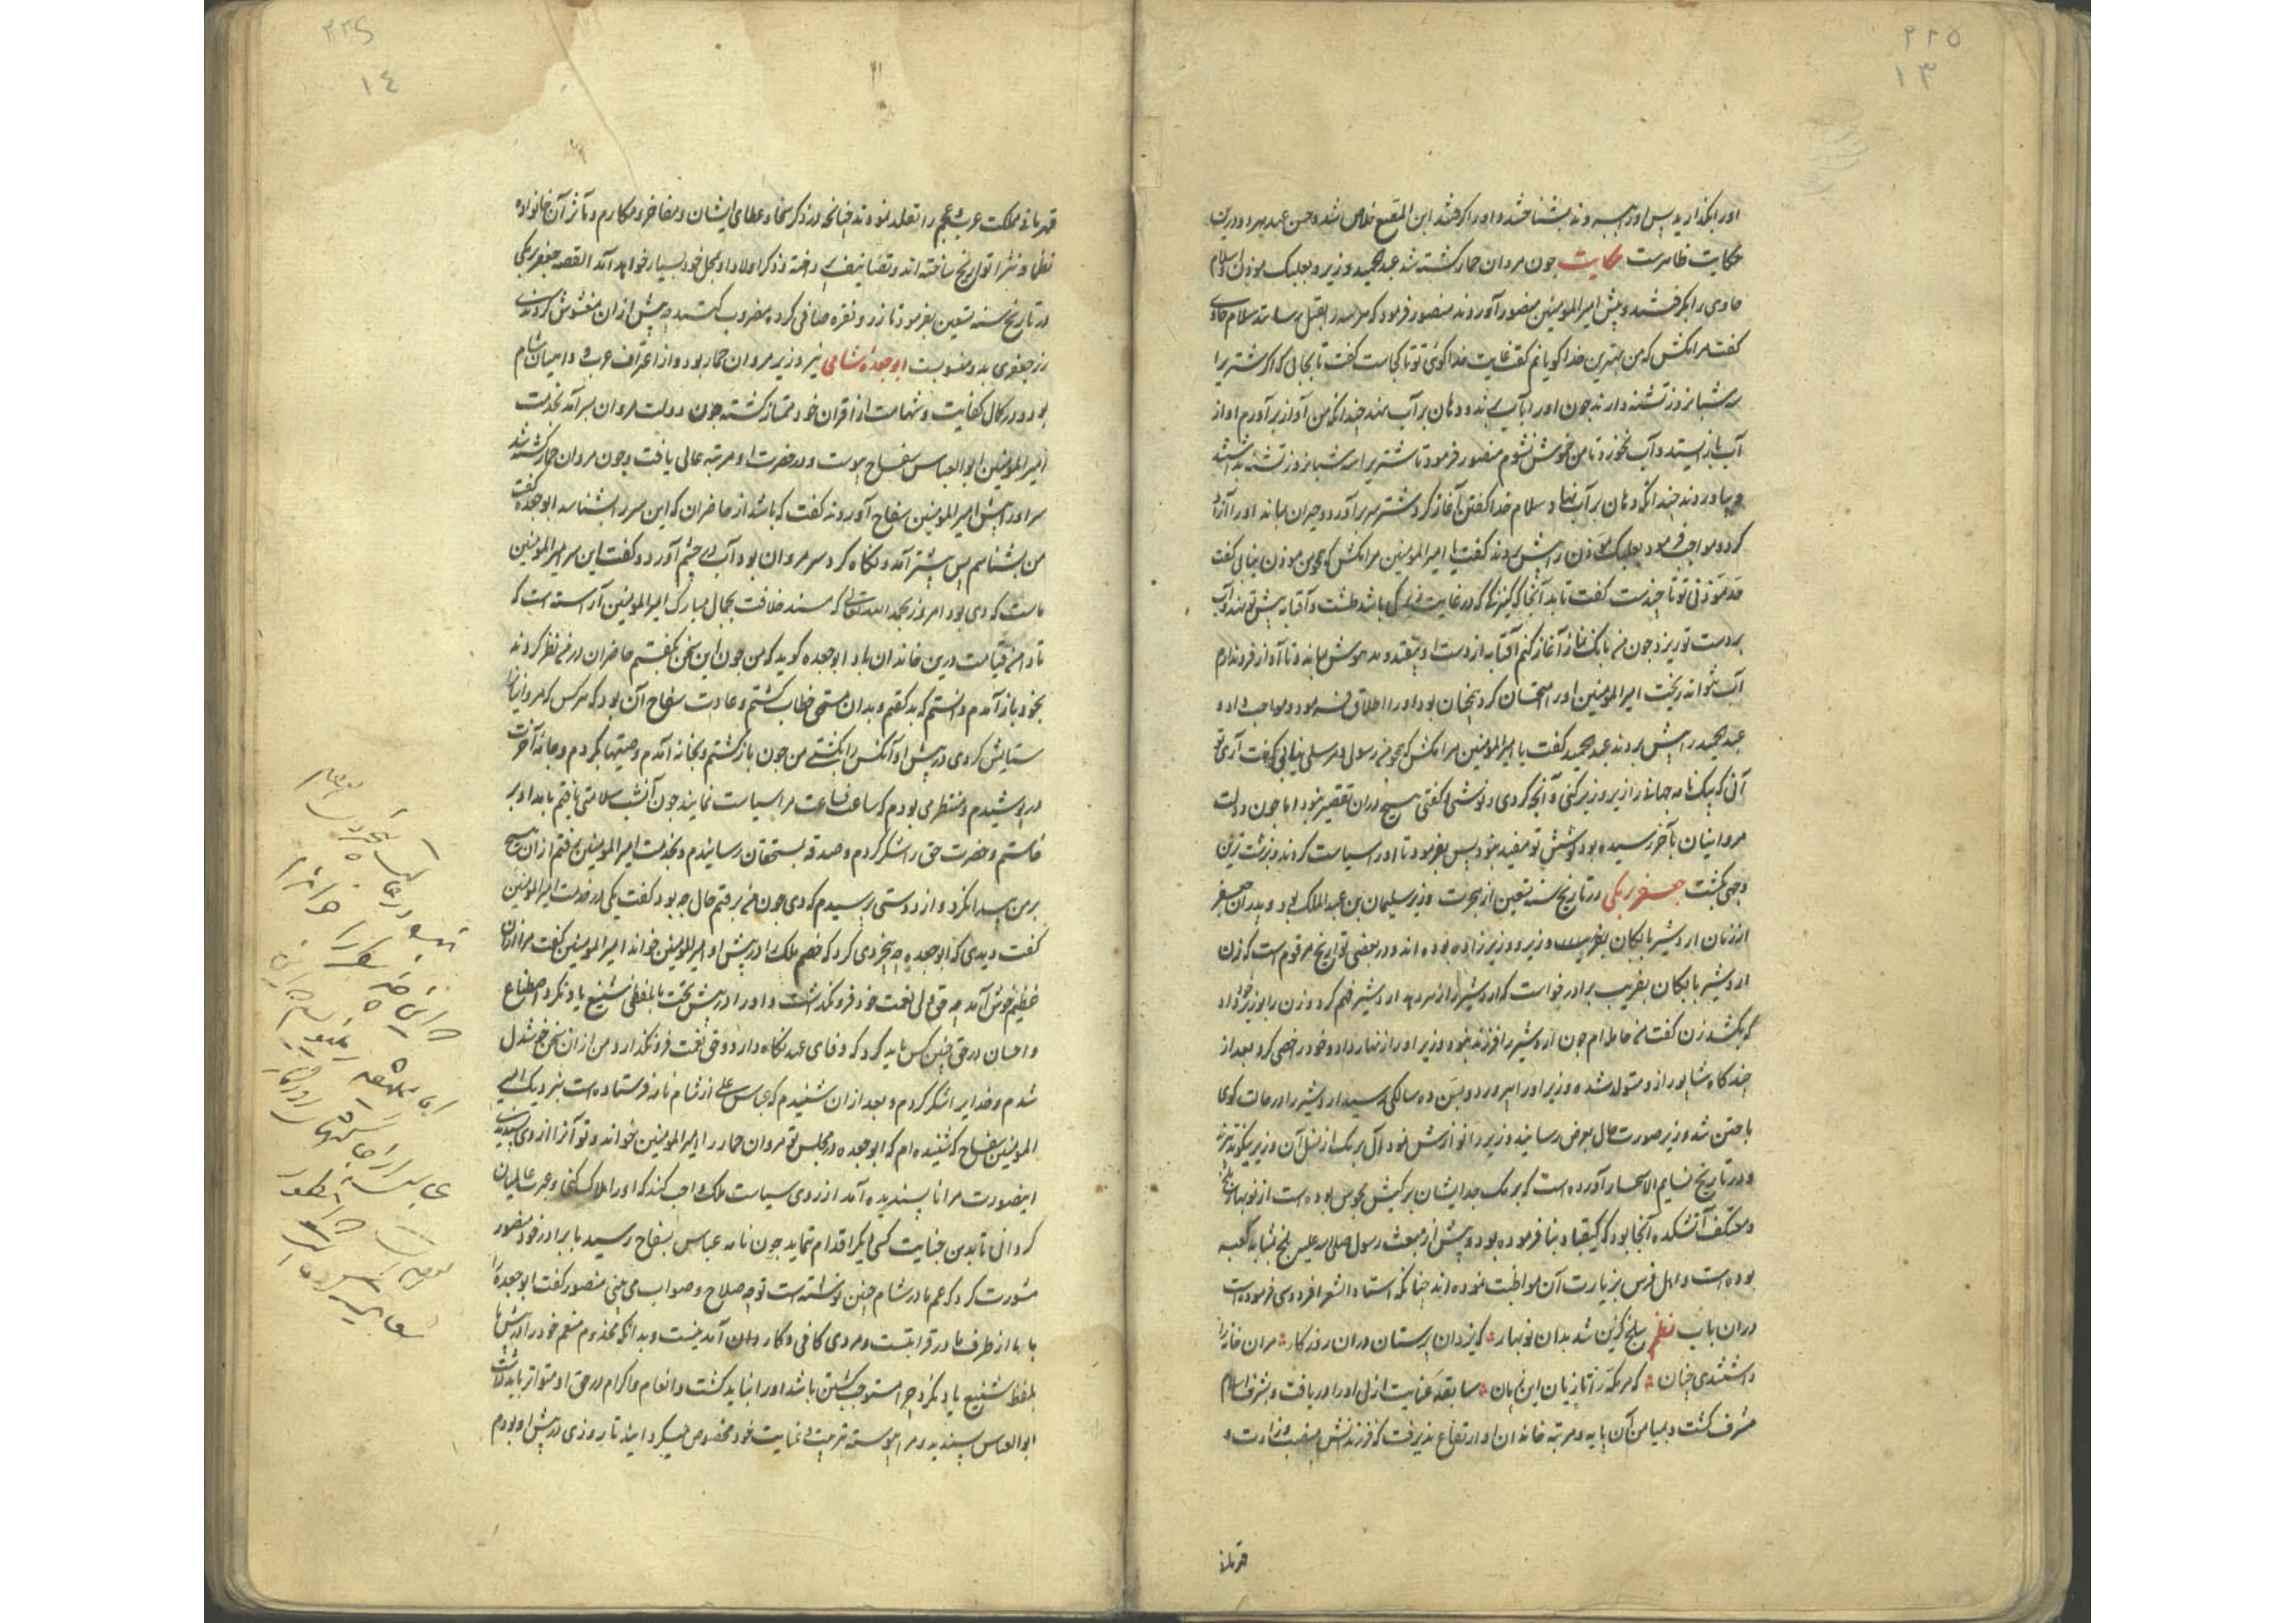 ۲۲۵
۱۳
اورا بگذارید پس اورا ببردند بشناختند و اورا گرفتند ابن المقفع خلاص شد و حسن عهد هر دو درین
حکایت ظاهرست حکایت چون مروان حمار کشته شد عبدالحمید وزیر و بعلبک موذن و سلام
حاوی را بگرفتند و پیش امیرالمومنین منصور آوردند منصور فرمود که هر سه را بقتل رسانند سلام حاوی
گفت مرا مکش که من بهترین خدا گویانم گفت غایت خدا گوئی تو تا کجاست گفت تا بجائی که اگر شتر یرا
سه شبانروز تشنه دارند چون اورا بآب برند و دهان بر آب نهند چندانکه من آواز برآورم او از
آب باز ایستد و آب نخورد تا من خموش نشوم منصور فرمود تا شتر یرا سه شبانروز تشنه داشتند
و بیاوردند چندانکه دهان بر آب نهاد سلام خدا گفتن آغاز کرد شتر سر برآورد و حیران بماند اورا آزاد
کرد و مواجب فرمود بعلبک موذن را پیش بردند گفت یا امیرالمومنین مرا مکش که همچو من موذن نیابی گفت
حد موذنی تو تا چندست گفت تا بدانجا که کنیزکی که در غایت زیرکی باشد طشت و آفتابه پیش تو نهد و آب
بر دست تو ریزد چون من بانک نماز آغاز کنم آفتابه از دست او بیفتد و مدهوش بماند و تا آواز فرو ندارم
آب نتواند ریخت امیرالمومنین اورا امتحان کرد همچنان بود اورا اطلاق فرمود و مواجب داد و
عبدالحمید را پیش بردند عبدالحمید گفت یا امیرالمومنین مرا مکش که همچو من رسولی و مرسلی نیابی گفت آری تو
آنی که بیک نامه جهانی را زیر و زبر کنی و آنچه کردی و نوشتی و گفتی هیچ دران تقصیر نبود اما چون دولت
مروانیان بآخر رسیده بود کوشش تو مفید نبود پس بفرمود تا اورا سیاست کردند و بزشت ترین
وجهی بکشت جعفر برمکی در تاریخ سنه تسعین از هجرت وزیر سلیمان بن عبدالملک بود و پدران جعفر
از زمان اردشیر بابکان وزیر و وزیرزاده بوده اند و در بعضی تواریخ مرقوم است که زن
اردشیر بابکان بفریب برادر خواست که اردشیر را زهر دهد اردشیر فهم کرد و زن را بوزیر خود داد
که بکشد زن گفت من حامله ام چون اردشیر را فرزند نبود وزیر اورا زنهار داد و خود را خصی کرد بعد از
چند گاه شاپور ازو متولد شد و وزیر اورا بپرورد و بسن ده سالکی رسید اردشیر را در حالت
با ختن شد وزیر صورت حال بعرض رسانید وزیر را نوازش نمود آل برمک از نسل آن وزیر نیکو تدبیرند
و در تاریخ نسایم الاسحار آورده است که برمک جد ایشان بر کیش مجوس بوده است از نوبهار بلخ
و معتکف آتشکده آنجا بود که کیقباد بنا فرموده بود و پیش از مبعث رسول صلی الله علیه بلخ بمثابه کعبه
بوده است و اهل فرس بزیارت آن مواظبت نموده اند چنانکه استاد الشعرا فردوسی فرموده است
دران باب نظم ببلخ گزین شد بدان نوبهار که یزدان پرستان دران روزگار مران خانه را
داشتندی چنان که مر مکه را تازیان این زمان سابقه عنایت ازلی اورا دریافت و بشرف اسلام
مشرف گشت و بمیامن آن پایه و مرتبه خاندان او ارتفاع پذیرفت که فرزندانش بمنصب وزارت و
قهرمانی
۲۲۶
۱٤
قهرمانی مملکت عرب و عجم را تقلد نموده اند چنانچه در ذکر سخا و عطای ایشان و مفاخر و مکارم و مآثر آن خانواده
نظما و نثرا تواریخ ساخته اند و تصانیف پرداخته و ذکر اولاد او بمحل خود بسیار خواهد آمد القصه جعفر برمکی
در تاریخ سنه تسعین بفرمود تا زر و نقره صافی کرده مضروب کنند چه پیش ازان مغشوش کردندی
زر جعفری بدو منسوبست ابو جعده شامی نیز وزیر مروان حمار بود و از اعراف عرب و داهیان شام
بود و در کمال کفایت و شهامت از اقران خود ممتاز گشته چون دولت مروان بسر آمد بخدمت
امیرالمومنین ابو العباس سفاح پیوست و در حضرت او مرتبه عالی یافت و چون مروان حمار کشته شد
سر اورا پیش امیرالمومنین سفاح آوردند گفت که باشد از حاضران که این سر را بشناسد ابو جعده گفت
من بشناسم پس پیشتر آمد و نگاه کرد سر مروان بود آب در چشم آورد و گفت این سر امیرالمومنین
ماست که دی بود امروز بحمد الله تعالی که مسند خلافت بجمال مبارک امیرالمومنین آراسته است که
تا دامن قیامت درین خاندان باد ابو جعده گوید که من چون این سخن بگفتم حاضران در من نظر کردند
بخود باز آمدم و دانستم که بد گفتم و بدان مستحق خطاب گشتم و عادت سفاح آن بود که هر کس که مروانیان را
ستایش کردی در پیش او آنکس را بکشتی من چون بازگشتم و بخانه آمدم وصیتها بکردم و جامه آخرت
در پوشیدم و منتظر می بودم که ساعت فساعت مرا سیاست نمایند چون آن شب سلامتی یافتم بامداد بر
خاستم و حضرت حق را شکر کردم و صدقه بمستحقان رسانیدم و بخدمت امیرالمومنین رفتم ازان هیچ
بر من پیدا نکرد و از دوستی پرسیدم که دی چون من برفتم حال چه بود گفت یکی در خدمت امیرالمومنین
گفت دیدی که ابو جعده چه بیخردی کرد که خصم ملک را در پیش او امیرالمومنین خواند امیرالمومنین گفت مرا ازان
عظیم خوش آمد چه حق ولی نعمت خود فرو نگذاشت و اورا در پیش تخت ما بلفظی شنیع یاد نکرد اصطناع
و احسان در حق چنین کس باید کرد که وفای عهد نگاه دارد و حق نعمت فرو نگذارد من ازان سخن خوشدل
شدم و خدایرا شکر کردم و بعد ازان شنیدم که عباس علی از شام نامه فرستاده است بنزدیک امیر
المومنین سفاح که شنیده ام که ابو جعده در مجلس تو مروان حمار را امیرالمومنین خواند و تو آنرا از وی پسندیدی
اینصورت مرا ناپسندیده آمد از روی سیاست ملک واجب کند که اورا هلاک کنی و عبرت عالمیان
گردانی تا بدین جنایت کسی دیگر اقدام ننماید چون نامه عباس بسفاح رسید با برادر خود منصور
مشورت کرد که عم ما در شام چنین نوشته است تو چه صلاح و صواب می بینی منصور گفت ابو جعده را
با ما از طرف مادر قرابتست و مردی کافی و کاردان آمدنیست و بدانکه مخدوم منعم خود را در پیش ما
بلفظ شنیع یاد نکرد چرا مستوجب کشتن باشد اورا نباید کشت و انعام و اکرام در حق او متواتر باید داشت
ابو العباس پسندید و مرا پیوسته بتربیت و عنایت خود مخصوص میکردانید تا روزی در پیش او بودم